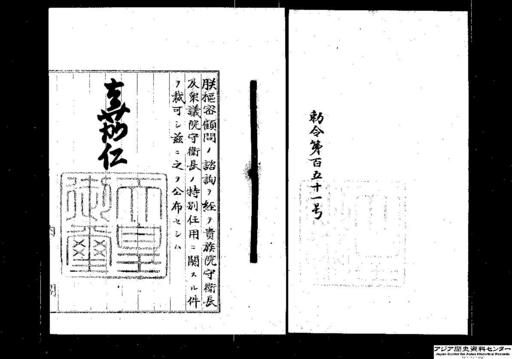 勅令第百五十一号
朕枢密顧問ノ諮詢ヲ経テ貴族院守衛長
及衆議院守衛長ノ特別任用ニ関スル件
ヲ裁可シ茲ニ之ヲ公布セシム
嘉仁
天皇
御璽
内閣
アジア歴史資料センター
Japan Center for Asian Historical Records